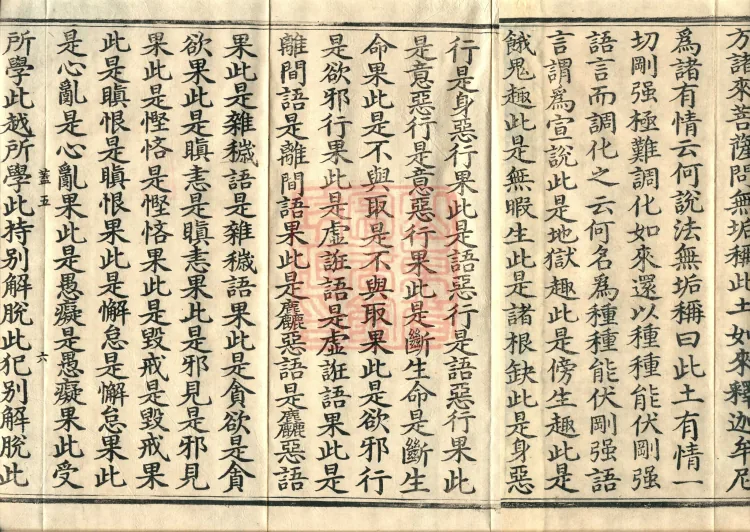 方諸來菩薩問無垢稱此土如來釋迦牟尼
為諸有情云何說法無垢稱曰此土有情一
切剛强極難調化如來還以種種能伏剛强
語言而調化之云何名為種種能伏剛强語
言謂為宣說此是地獄趣此是傍生趣此是
餓鬼趣此是無暇生此是諸根缺此是身惡
行是身惡行果此是語惡行是語惡行果此
是意惡行是意惡行果此是斷生命是斷生
命果此是不與取是不與取果此是欲邪行
是欲邪行果此是虛誑語是虛誑語果此是
離間語是離間語果此是麤惡語是麤惡語
果此是雜穢語是雜穢語果此是貪欲是貪
欲果此是瞋恚是瞋恚果此是邪見是邪見
果此是慳悋是慳悋果此是毀戒是毀戒果
此是瞋恨是瞋恨果此是懈怠是懈怠果此
是心亂是心亂果此是愚癡是愚癡果此受
蓋五 六
所學此越所學此持別解脫此犯別解脫此